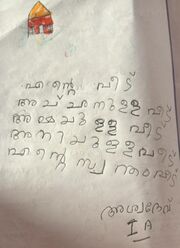 എന്റെ വീട്
അച്ഛനുള്ള വീട്
അമ്മയുള്ള വീട്
അനിയുള്ള വീട്
എന്റെ സ്വന്തം വീട്
അശ്വദേവ്
I A